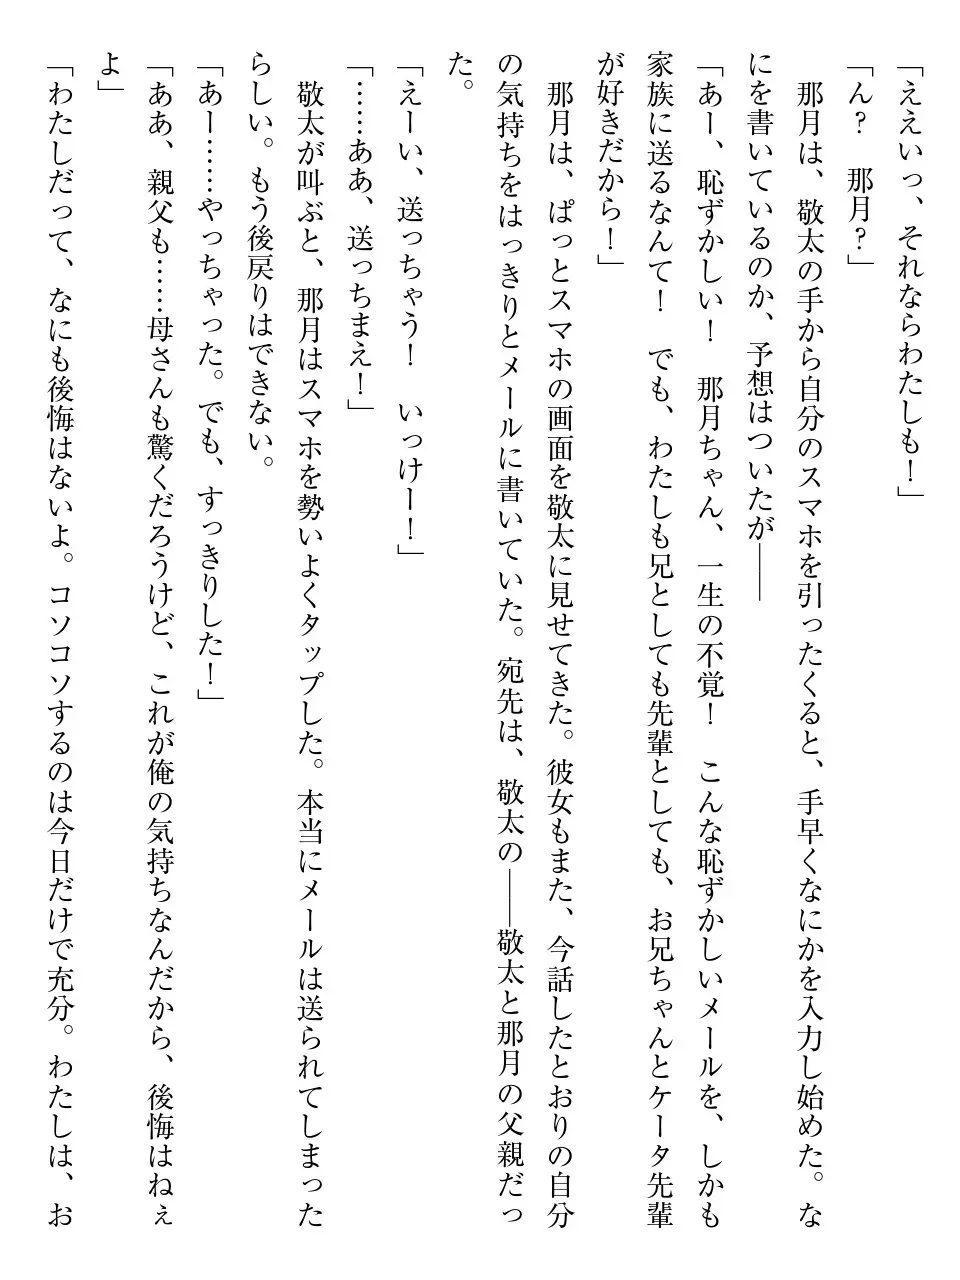 「ええいっ、それならわたしも！」
「ん？　那月？」
　那月は、敬太の手から自分のスマホを引ったくると、手早くなにかを入力し始めた。な
にを書いているのか、予想はついたが――
「あー、恥ずかしい！　那月ちゃん、一生の不覚！　こんな恥ずかしいメールを、しかも
家族に送るなんて！　でも、わたしも兄としても先輩としても、お兄ちゃんとケータ先輩
が好きだから！」
　那月は、ぱっとスマホの画面を敬太に見せてきた。彼女もまた、今話したとおりの自分
の気持ちをはっきりとメールに書いていた。宛先は、敬太の――敬太と那月の父親だっ
た。
「えーい、送っちゃう！　いっけー！」
「……ああ、送っちまえ！」
　敬太が叫ぶと、那月はスマホを勢いよくタップした。本当にメールは送られてしまった
らしい。もう後戻りはできない。
「あー……やっちゃった。でも、すっきりした！」
「ああ、親父も……母さんも驚くだろうけど、これが俺の気持ちなんだから、後悔はねぇ
よ」
「わたしだって、なにも後悔はないよ。コソコソするのは今日だけで充分。わたしは、お